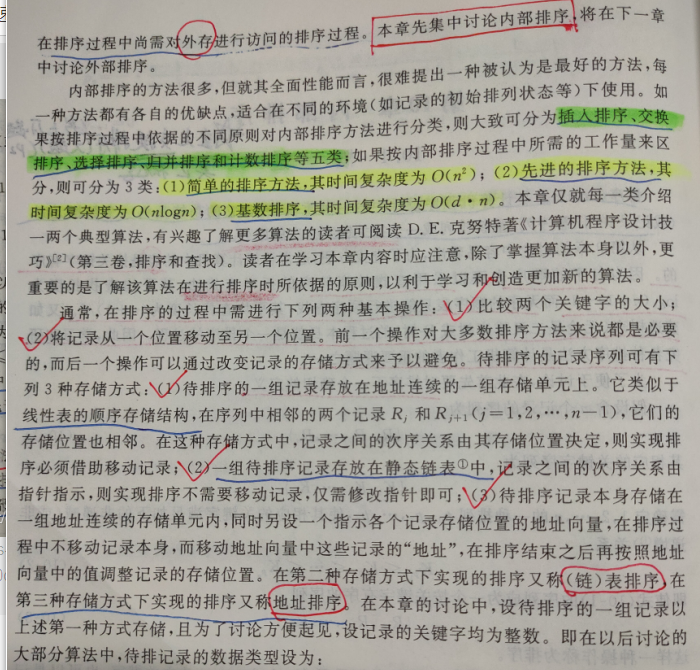 在排序过程中尚需对外存进行访问的排序过程。本章先集中讨论内部排序,将在下一章
中讨论外部排序。
内部排序的方法很多,但就其全面性能而言,很难提出一种被认为是最好的方法,每
一种方法都有各自的优缺点,适合在不同的环境(如记录的初始排列状态等)下使用。如
果按排序过程中依据的不同原则对内部排序方法进行分类,则大致可分为插入排序、交换
排序、选择排序、归并排序和计数排序等五类;如果按内部排序过程中所需的工作量来区
分,则可分为 3 类:(1)简单的排序方法,其时间复杂度为 O(n²);(2)先进的排序方法,其
时间复杂度为 O(nlogn);(3)基数排序,其时间复杂度为 O(d·n)。本章仅就每一类介绍
一两个典型算法,有兴趣了解更多算法的读者可阅读 D. E. 克努特著《计算机程序设计技
巧》[2](第三卷,排序和查找)。读者在学习本章内容时应注意,除了掌握算法本身以外,更
重要的是了解该算法在进行排序时所依据的原则,以利于学习和创造更加新的算法。
通常,在排序的过程中需进行下列两种基本操作:(1)比较两个关键字的大小;
(2)将记录从一个位置移动至另一个位置。前一个操作对大多数排序方法来说都是必要
的,而后一个操作可以通过改变记录的存储方式来予以避免。待排序的记录序列可有下
列 3 种存储方式:(1)待排序的一组记录存放在地址连续的一组存储单元上。它类似于
线性表的顺序存储结构,在序列中相邻的两个记录 Rj 和 Rj+1(j=1,2,…,n−1),它们的
存储位置也相邻。在这种存储方式中,记录之间的次序关系由其存储位置决定,则实现排
序必须借助移动记录;(2)一组待排序记录存放在静态链表①中,记录之间的次序关系由
指针指示,则实现排序不需要移动记录,仅需修改指针即可;(3)待排序记录本身存储在
一组地址连续的存储单元内,同时另设一个指示各个记录存储位置的地址向量,在排序过
程中不移动记录本身,而移动地址向量中这些记录的“地址”,在排序结束之后再按照地址
向量中的值调整记录的存储位置。在第二种存储方式下实现的排序又称(链)表排序,在
第三种存储方式下实现的排序又称地址排序。在本章的讨论中,设待排序的一组记录以
上述第一种方式存储,且为了讨论方便起见,设记录的关键字均为整数。即在以后讨论的
大部分算法中,待排记录的数据类型设为: